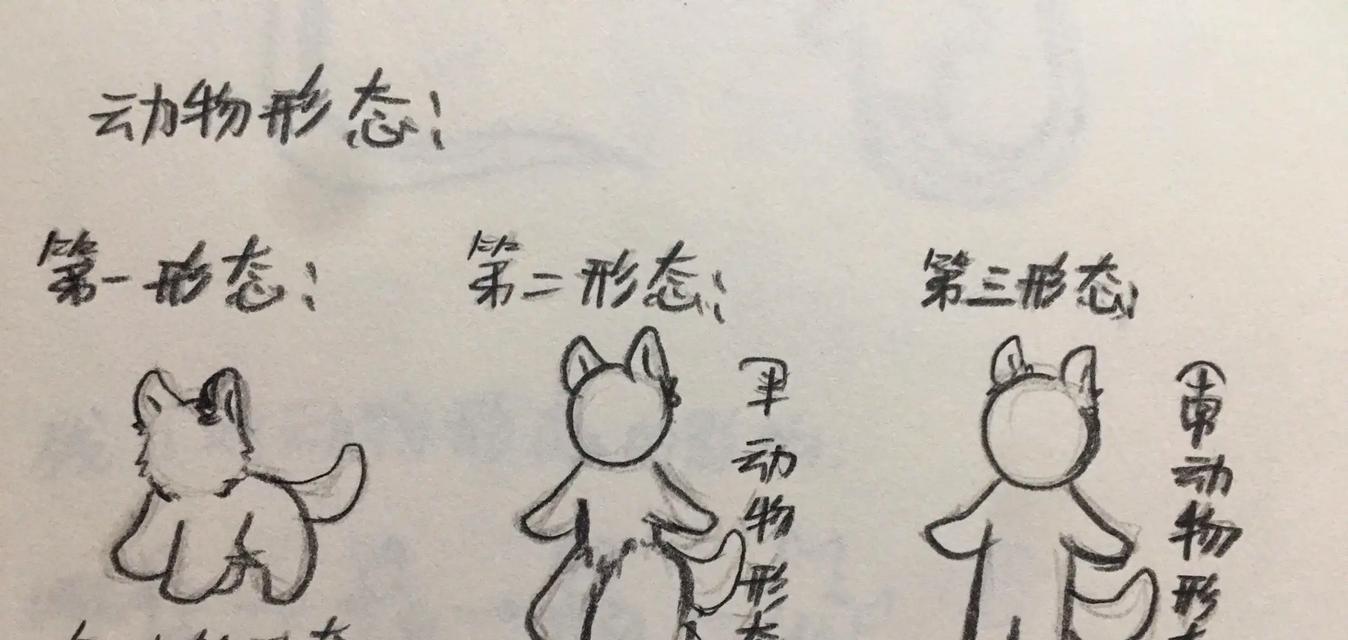 动物形态:
第一形态:
第二形态:
第三形态:
半动物形态
动物形
形态